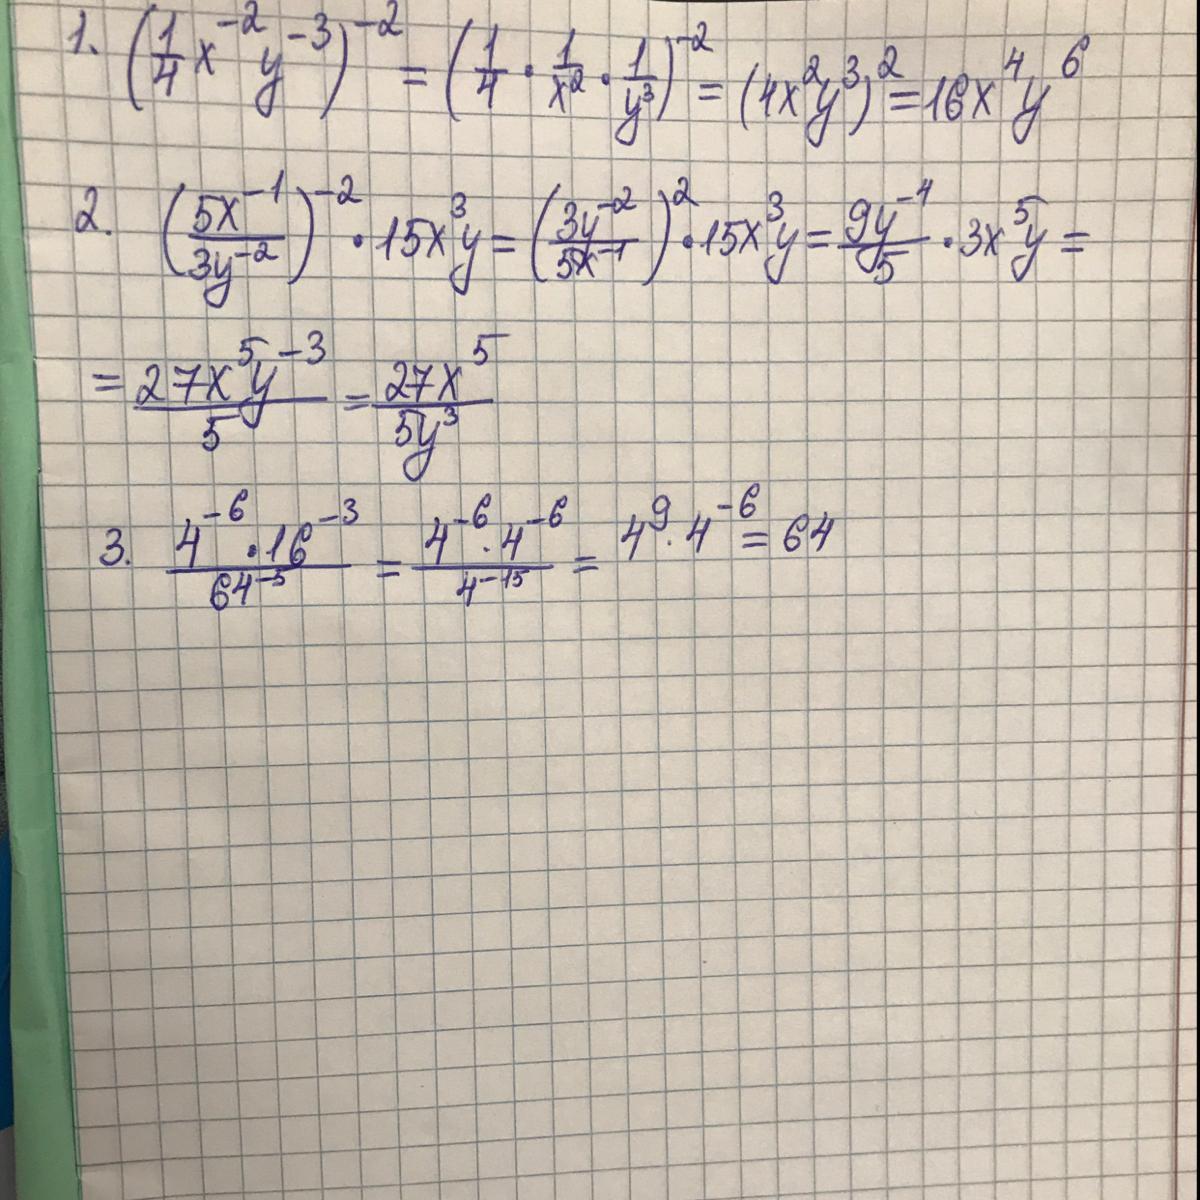 1. (1/4 x^-2 y^-3)^-2 = (1/4 · 1/x^2 · 1/y^3)^-2 = (4x^2y^3)^2 = 16x^4y^6
2. (5x^-1/3y^-2)^-2 · 15x^3y = (3y^-2/5x^-1)^2 · 15x^3y = 9y^-4/5 · 3x^5y =
= 27x^5y^-3/5 = 27x^5/5y^3
3. 4^-6 · 16^-3/64^-5 = 4^-6 · 4^-6/4^-15 = 4^9 · 4^-6 = 64